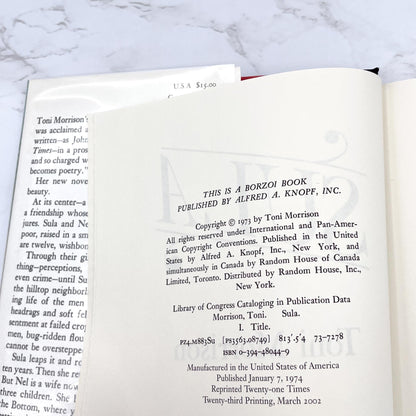 USA $15.00
Toni Morrison's
was acclaimed a
written—as John
Times—in a pros
and so charged w
becomes poetry."
Her new novel
beauty.
At its center—a
a friendship whose
jures. Sula and Nel
poor, raised in a sm
are twelve, wishbon
Through their gi
thing—perceptions,
even crime—until Su
the hilltop neighborh
ing life of the men
headrags and soft fel
sentment at failed crop
men, bug-ridden flou
cannot be overstepped
Sula leaps it and ro
ten years. Then she ret
But Nel is a wife now
three children. She b
the Bottom, where
THIS IS A BORZOI BOOK
PUBLISHED BY ALFRED A. KNOPF, INC.
Copyright © 1973 by Toni Morrison
All rights reserved under International and Pan-Amer-
ican Copyright Conventions. Published in the United
States by Alfred A. Knopf, Inc., New York, and
simultaneously in Canada by Random House of Canada
Limited, Toronto. Distributed by Random House, Inc.,
New York.
Library of Congress Cataloging in Publication Data
Morrison, Toni. Sula.
I. Title.
PZ4.M883Su [PS3563.O8749] 813'.5'4 73-7278
ISBN 0-394-48044-9
Manufactured in the United States of America
Published January 7, 1974
Reprinted Twenty-one Times
Twenty-third Printing, March 2002